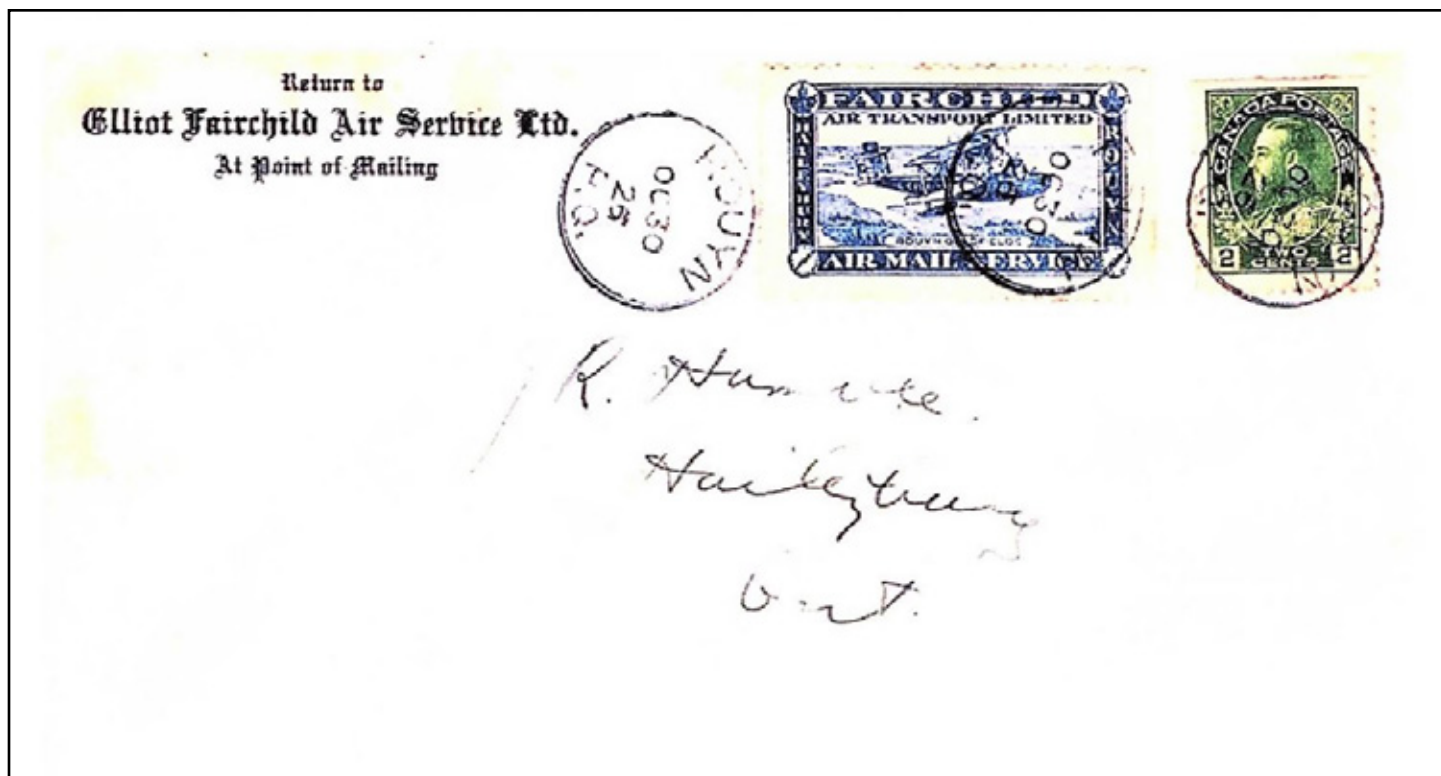 Return to
Elliot Fairchild Air Service Ltd.
At Point of Mailing
ROUYN
OC 30
25
P.Q.
FAIRCHILD
AIR TRANSPORT LIMITED
HAILEYBURY
ROUYN
ROUYN GOLDFIELDS
AIR MAIL SERVICE
OC 30
CANADA POSTAGE
2 CENTS 2
R.
Haileybury
Ont.